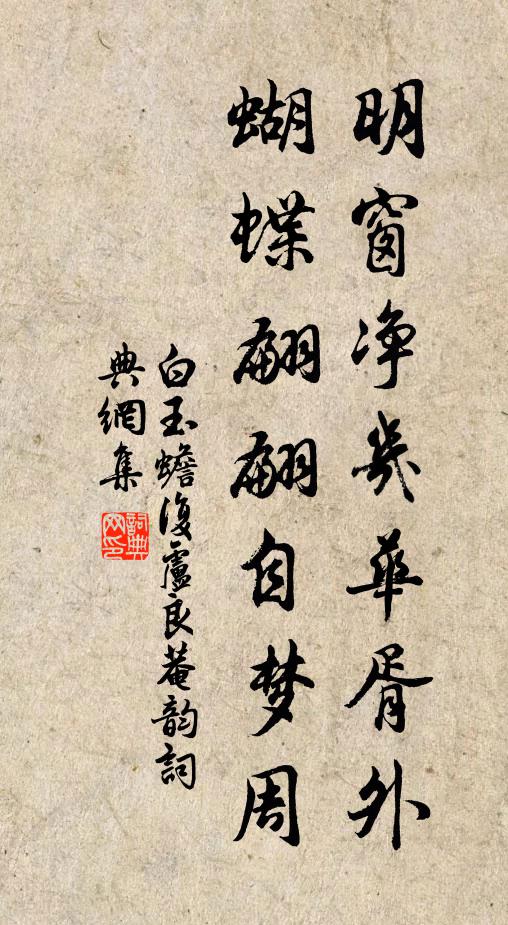 明窗净几华胥外
蝴蝶翩翩自梦周
白玉蟾復盧良菴韵詞
典網集
詞典
网印